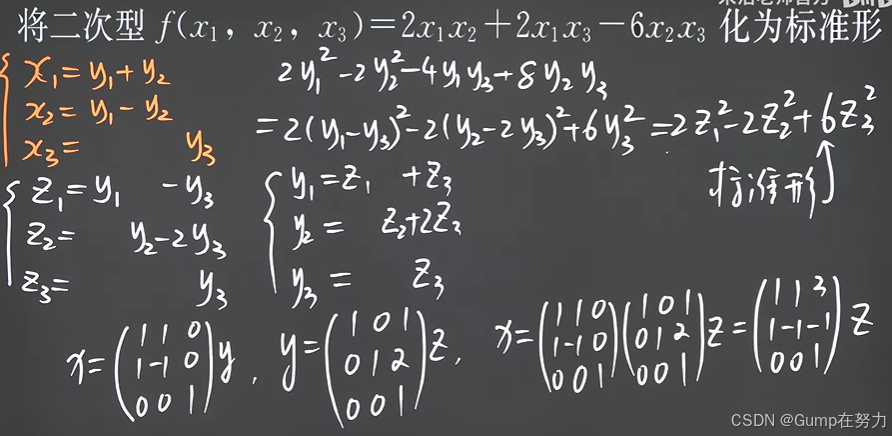 将二次型 f(x₁，x₂，x₃)=2x₁x₂+2x₁x₃−6x₂x₃ 化为标准形
{ x₁=y₁+y₂
x₂=y₁−y₂
x₃= y₃
2y₁²−2y₂²−4y₁y₃+8y₂y₃
=2(y₁−y₃)²−2(y₂−2y₃)²+6y₃²=2z₁²−2z₂²+6z₃²
标准形↑
{ z₁=y₁ −y₃
z₂= y₂−2y₃
z₃= y₃
{ y₁=z₁ +z₃
y₂= z₂+2z₃
y₃= z₃
x=(1 1 0
1 −1 0
0 0 1)y，
y=(1 0 1
0 1 2
0 0 1)z，
x=(1 1 0
1 −1 0
0 0 1)(1 0 1
0 1 2
0 0 1)z=(1 1 3
1 −1 −1
0 0 1)z
CSDN @Gump在努力